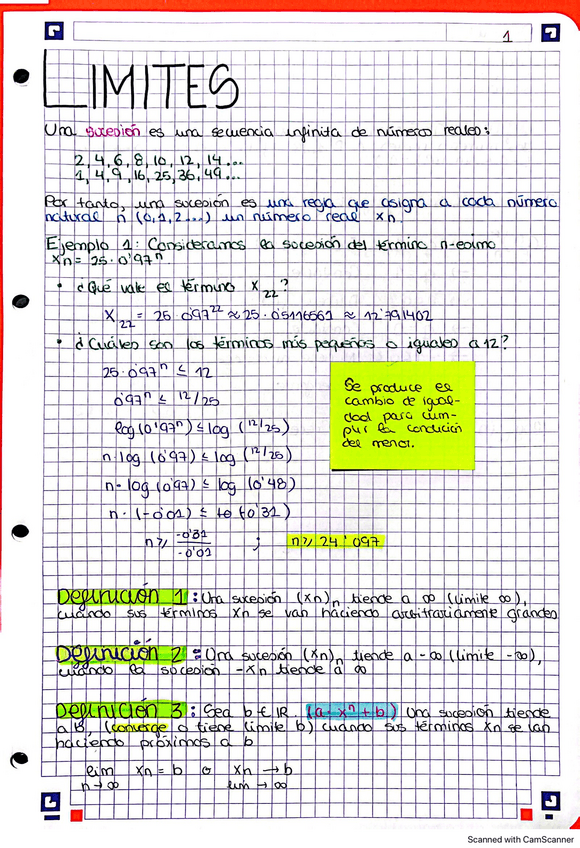 1
LIMITES
Una sucesión es una secuencia infinita de números reales:
2, 4, 6, 8, 10, 12, 14...
1, 4, 9, 16, 25, 36, 49...
Por tanto, una sucesión es una regla que asigna a cada número
natural n (0, 1, 2...) un número real xn.
Ejemplo 1: Consideramos la sucesión del término n-esimo
xn = 25·0'97ⁿ
• ¿Qué vale el término x₂₂?
x₂₂ = 25·0'97²² ≈ 25·0'5116561 ≈ 12'791402
• ¿Cuáles son los términos más pequeños o iguales a 12?
25·0'97ⁿ ≤ 12
0'97ⁿ ≤ 12/25
log (0'97ⁿ) ≤ log (12/25)
n·log (0'97) ≤ log (12/25)
n· log (0'97) ≤ log (0'48)
n· (-0'01) ≤ (-0'31)
n ≥ -0'31/-0'01 ; n ≥ 24'097
Se produce el
cambio de igual-
dad para cum-
plir la condición
del menor.
Definición 1: Una sucesión (xn)n tiende a ∞ (límite ∞),
cuando sus términos xn se van haciendo arbitrariamente grandes
Definición 2: Una sucesión (xn)n tiende a -∞ (límite -∞),
cuando la sucesión -xn tiende a ∞
Definición 3: Sea b ∈ IR, (a·xⁿ+b) Una sucesión tiende
a B, (converge o tiene límite b) cuando sus términos xn se van
haciendo próximos a b
lim xn = b o xn → b
n→∞ lim → ∞
Scanned with CamScanner